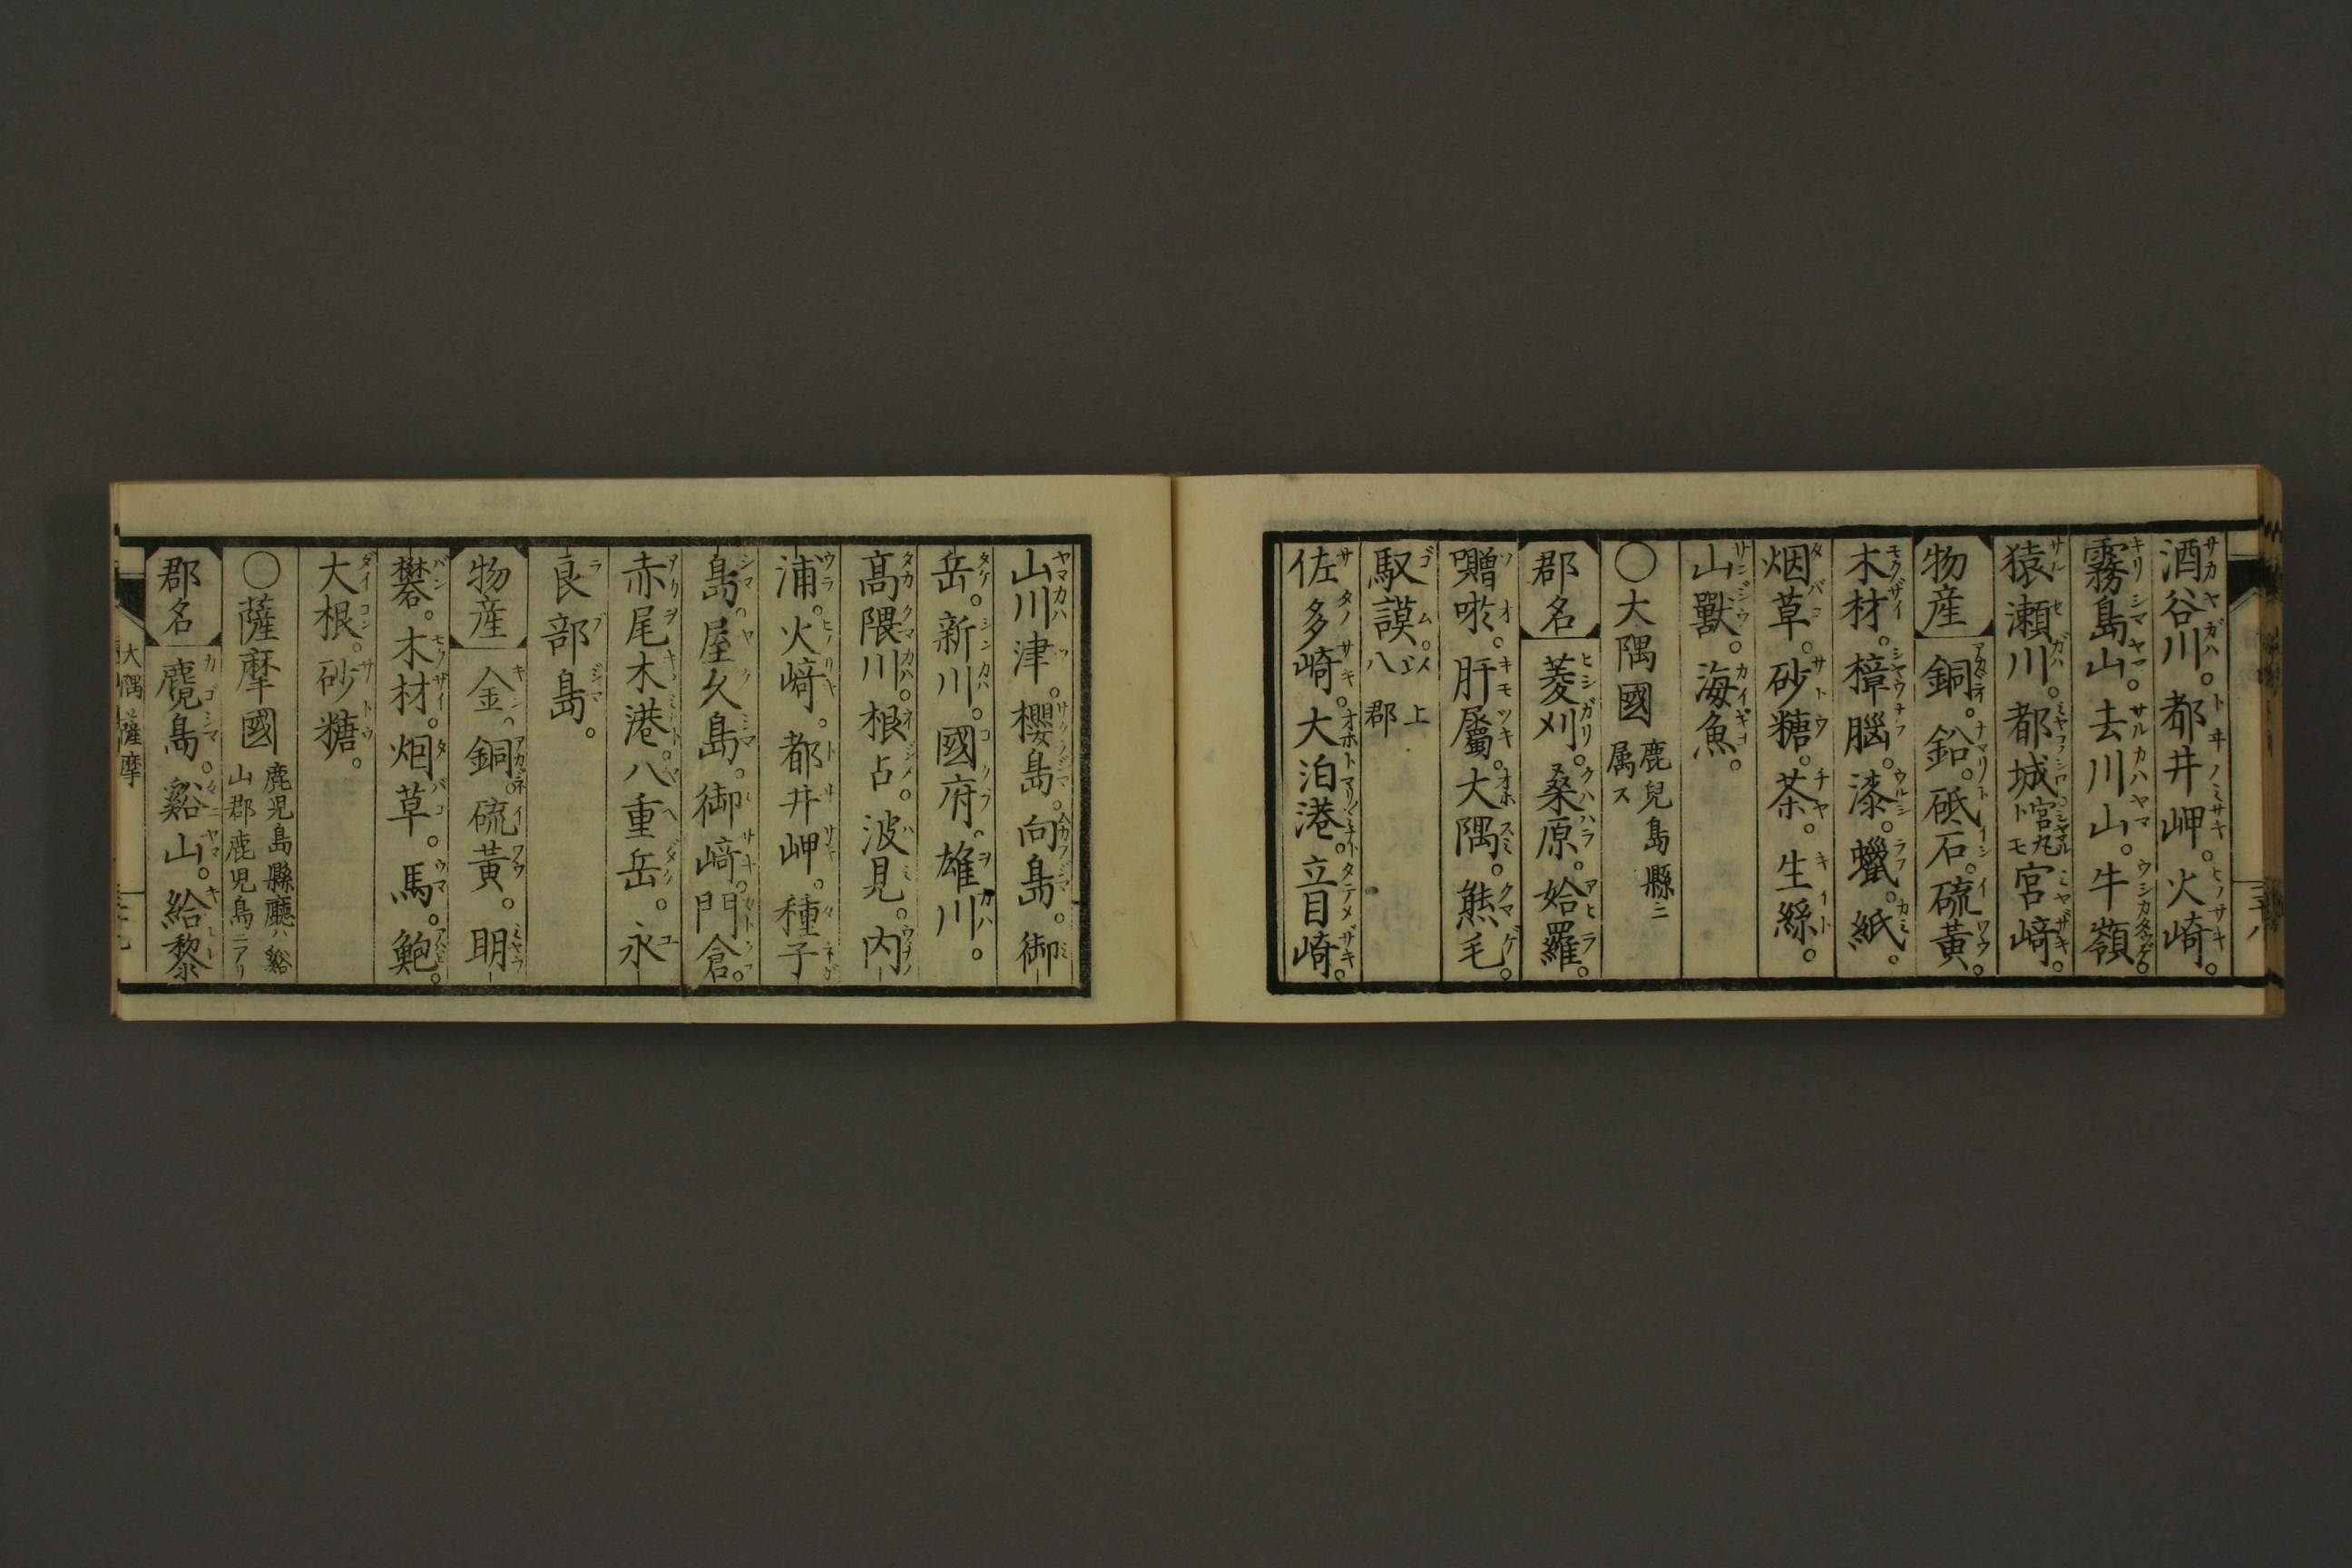 酒谷川。都井岬。火崎。
霧島山。去川山。牛嶺。
猿瀬川。都城宮丸トモ宮﨑。
物産 銅。鉛。砥石。硫黃。
木材。樟腦。漆。蠟。紙。
烟草。砂糖。茶。生絲。
山獸。海魚。
〇大隅國 鹿兒島縣ニ属ス
郡名 菱刈。桑原。姶羅。
囎唹。肝屬。大隅。熊毛。
馭謨。以上八郡
佐多崎。大泊港。立目崎。
山川津。櫻島。向島。御
岳。新川。國府。雄川。
高隈川。根占。波見。内
浦。火﨑。都井岬。種子
島。屋久島。御﨑。門倉。
赤尾木港。八重岳。永
良部島。
物産 金。銅。硫黃。明
礬。木材。烟草。馬。鮑。
大根。砂糖。
〇薩摩國 鹿児島縣廳ハ谿山郡鹿児島ニアリ
郡名 麑島。谿山。給黎
大隅 薩摩